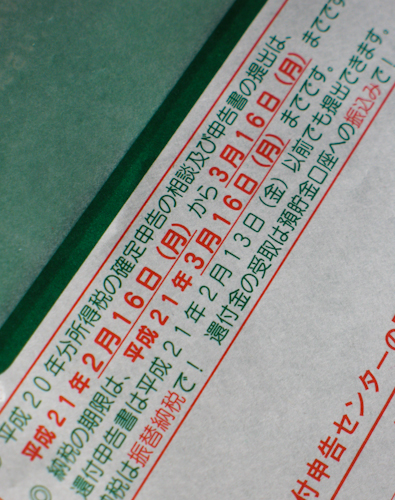 平成20年分所得税の確定申告の相談及び申告書の提出は、
平成21年2月16日(月)から3月16日(月)までです。
◎ 納税の期限は、平成21年3月16日(月)までです。
還付申告書は平成21年2月13日(金)以前でも提出できます。
納税は振替納税で! 還付金の受取は預貯金口座への振込みで!
付申告センターの